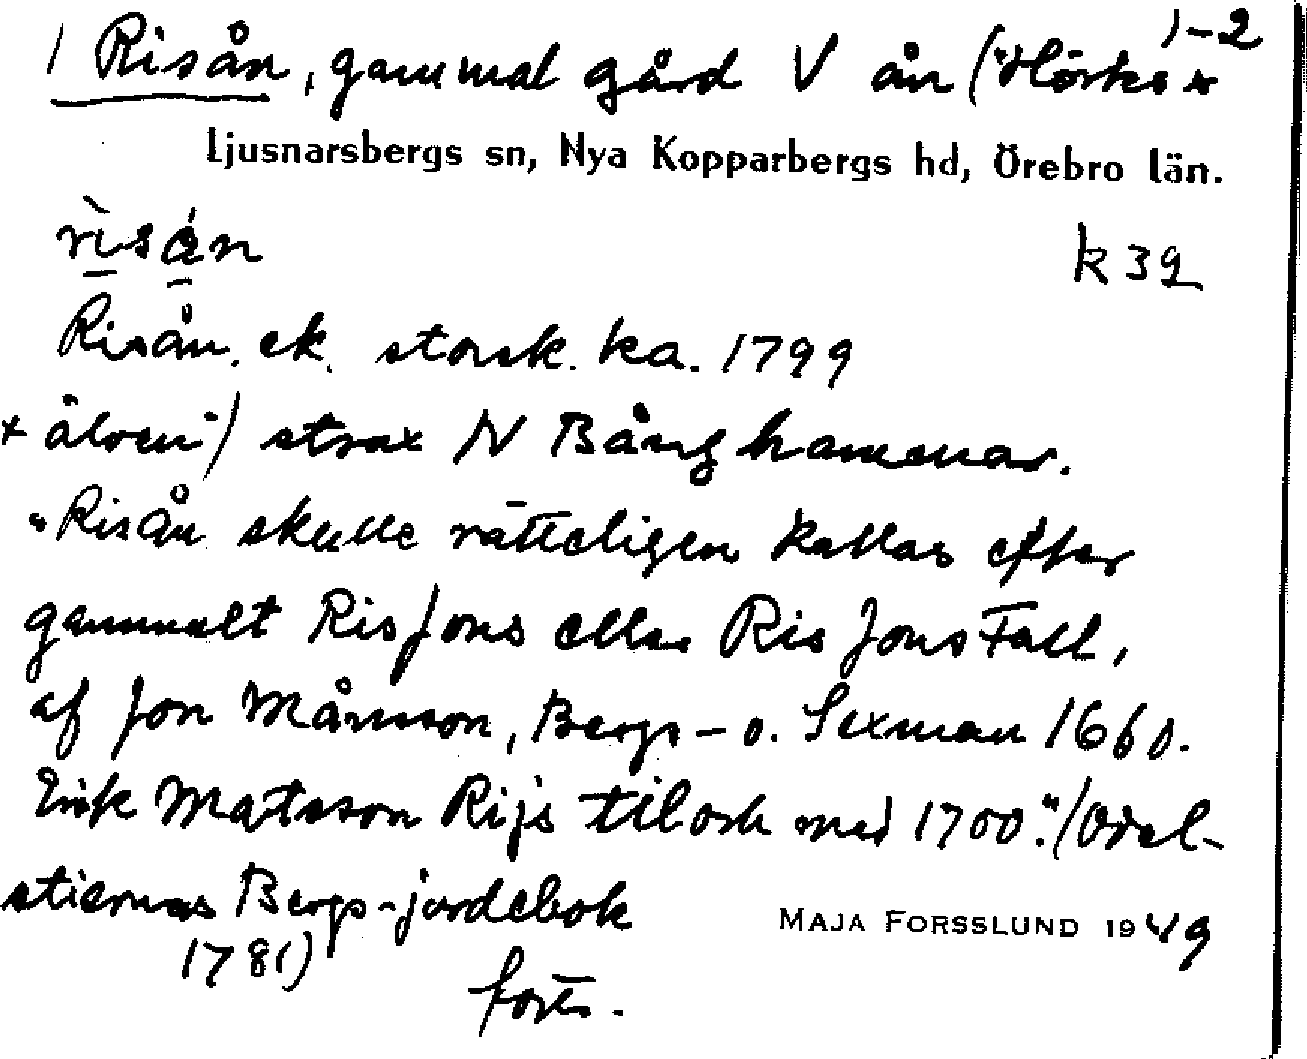 1 Risån, gammal gård V ån ("Hörks x 1-2
Ljusnarsbergs sn, Nya Kopparbergs hd, Örebro län.
rìsán
k 39
Risån. ek. storsk. ka. 1799
x älven") strax N Bånghammar.
"Risån skulle rätteligen kallas efter
gammalt Risjons eller Ris Jons Fall,
af Jon Månsson, Bergs- o. Sexman 1660.
Erik Matsson Rijs til och med 1700."/Odel-
stiernas Bergs-jordebok
1781)
MAJA FORSSLUND 1949
forts.